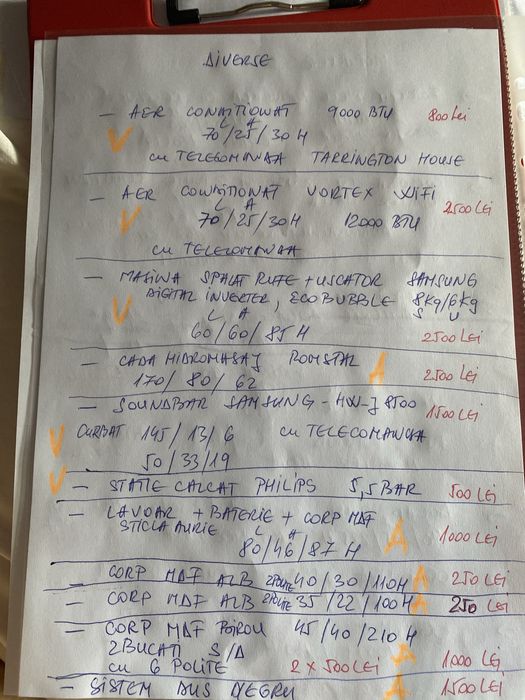 DIVERSE
- AER CONDITIONAT 9000 BTU 800 Lei
L A
V 70/25/30 H
cu TELECOMANDA TARRINGTON HOUSE
- AER CONDITIONAT VORTEX WIFI 2500 LEI
L A
V 70/25/30H 12000 BTU
cu TELECOMANDA
- MASINA SPALAT RUFE + USCATOR SAMSUNG
DIGITAL INVERTER, ECOBUBBLE 8kg/6kg
V L A S U
60/60/85 H 2500 LEI
- CADA HIDROMASAJ ROMSTAL A 2500 LEI
170/80/62
- SOUNDBAR SAMSUNG - HW-J 8500 1500 LEI
V CURBAT 145/13/6 cu TELECOMANDA
50/33/19
V - STATIE CALCAT PHILIPS 5,5 BAR 500 LEI
- LAVOAR + BATERIE + CORP MDF
STICLA AURIE A 1000 LEI
L A
80/46/87 H
- CORP MDF ALB 2 POLITE 40/30/110H A 250 LEI
- CORP MDF ALB 2 POLITE 35/22/100H A 250 LEI
- CORP MDF 45/40/210 H
2 BUCATI S/D A
cu 6 POLITE 2 x 500 LEI 1000 LEI
- SISTEM DUS NEGRU A 1500 LEI